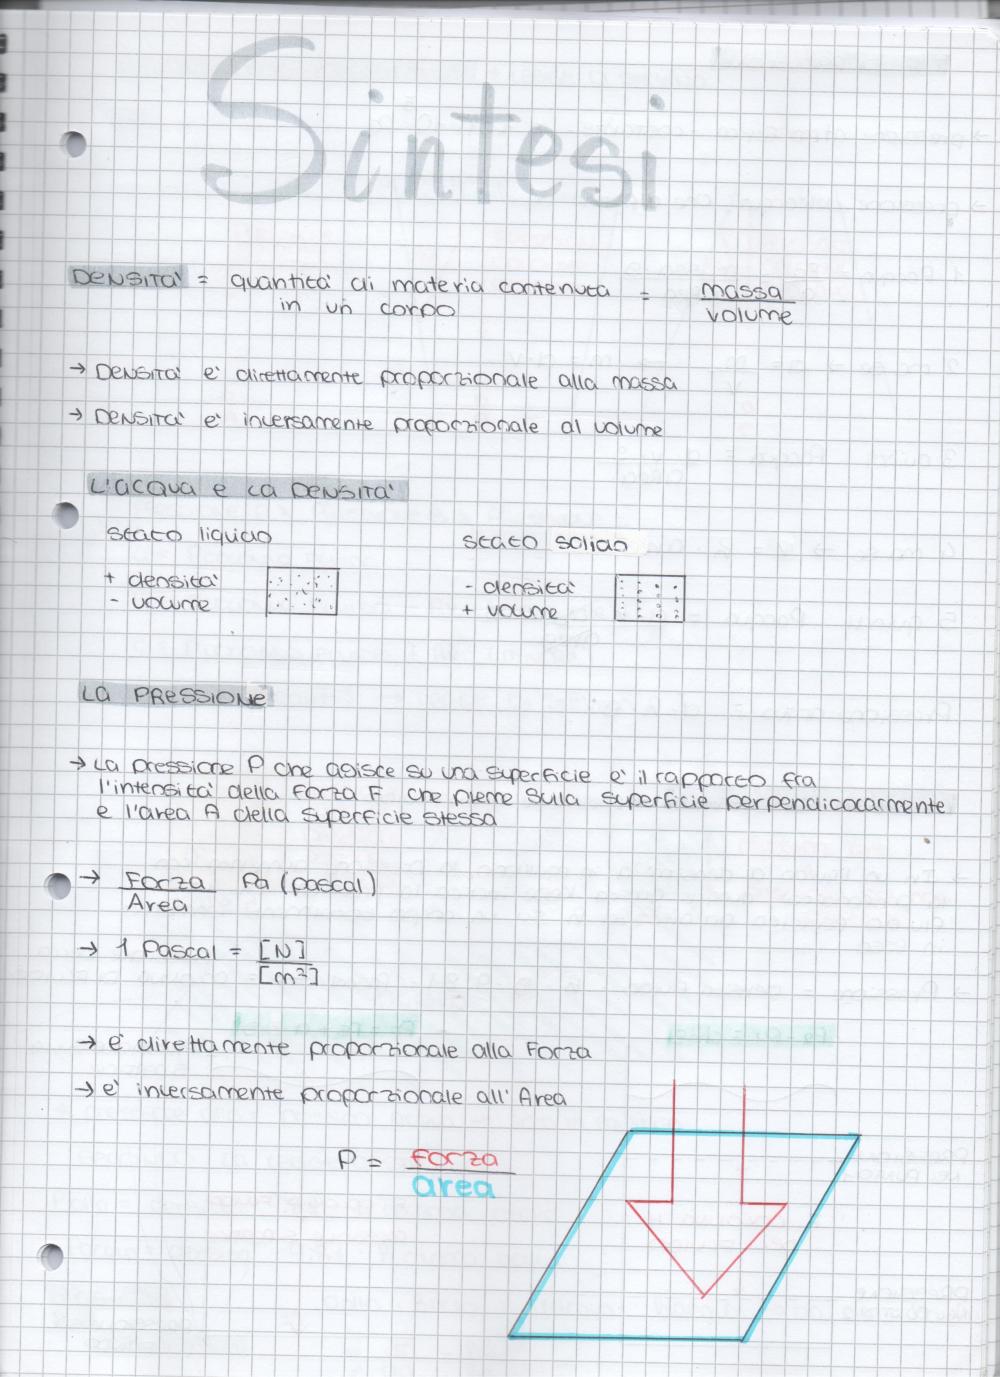 Sintesi
DENSITA' = quantità di materia contenuta = massa
in un corpo volume
→ DENSITA' è direttamente proporzionale alla massa
→ DENSITA' è inversamente proporzionale al volume
L'ACQUA E LA DENSITA'
stato liquido stato solido
+ densità - densità
- volume + volume
LA PRESSIONE
→ La pressione P che agisce su una superficie è il rapporto fra
l'intensità della forza F che preme sulla superficie perpendicolarmente
e l'area A della superficie stessa
→ Forza Pa (pascal)
Area
→ 1 Pascal = [N]
[m²]
→ è direttamente proporzionale alla Forza
→ è inversamente proporzionale all'Area
P = forza
area